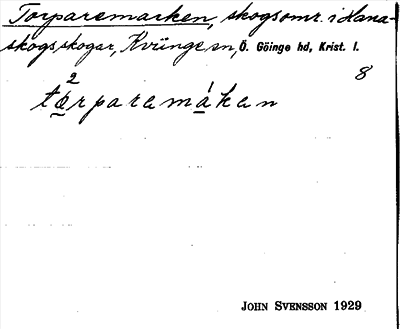 Torparemarken, skogsomr. i Hana-
skogs skogar, Kviinge sn, Ö. Göinge hd, Krist. l.
8
tɷ̲²rparamá̲kan
JOHN SVENSSON 1929